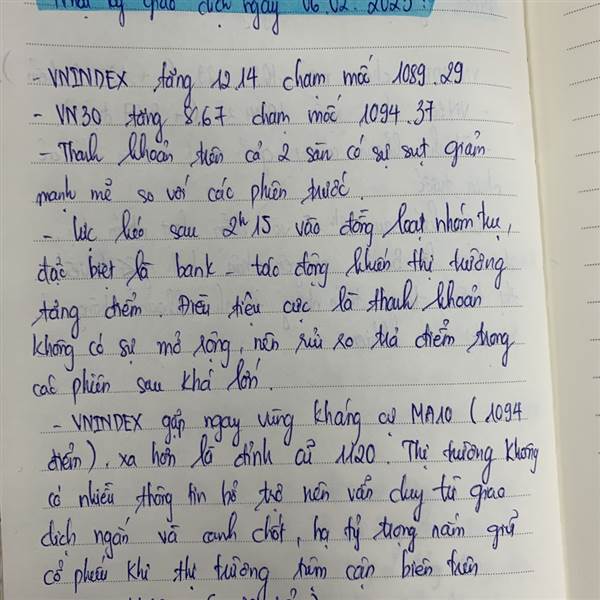 Nhật ký giao dịch ngày 06.02.2023:
- VNINDEX tăng 12.14 chạm mốc 1089.29
- VN30 tăng 8.67 chạm mốc 1094.37
- Thanh khoản trên cả 2 sàn có sự sụt giảm
mạnh mẽ so với các phiên trước.
- Lực kéo sau 2h15 vào đồng loạt nhóm trụ,
đặc biệt là bank - tác động khiến thị trường
tăng điểm. Điều tiêu cực là thanh khoản
không có sự mở rộng, nên rủi ro trả điểm trong
các phiên sau khá lớn.
- VNINDEX gặp ngay vùng kháng cự MA10 (1094
điểm). xa hơn là đỉnh cũ 1120. Thị trường không
có nhiều thông tin bổ trợ nên vẫn duy trì giao
dịch ngắn và canh chốt, hạ tỷ trọng nắm giữ
cổ phiếu khi thị trường tiệm cận biên trên